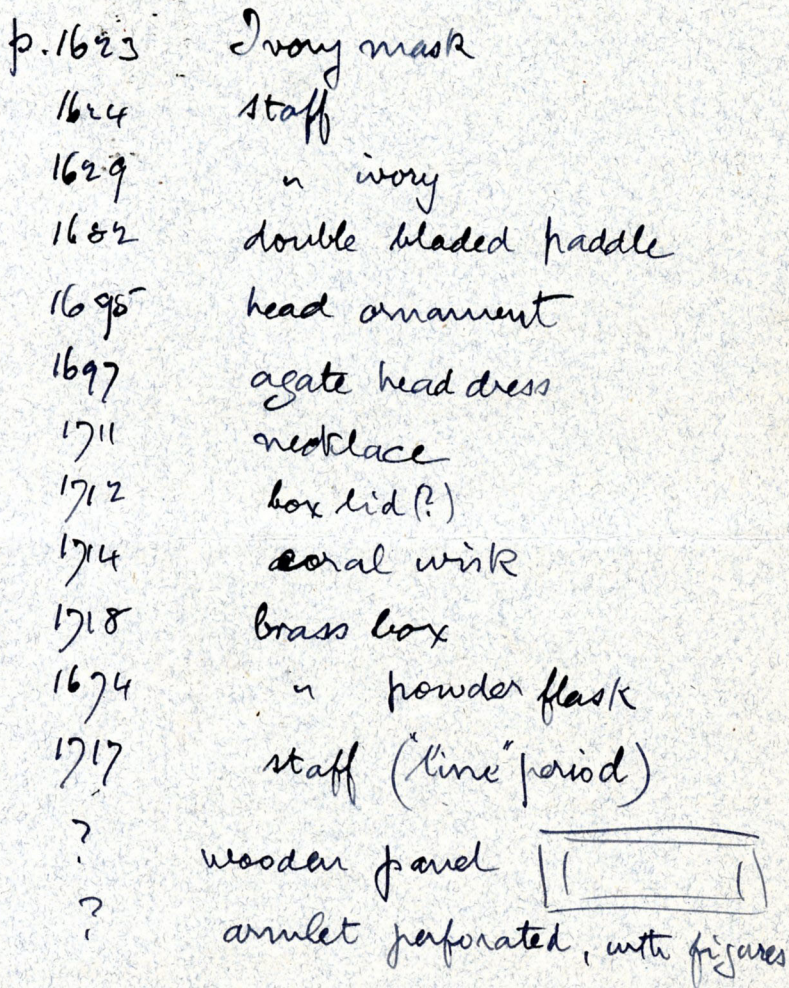 p. 1623 Ivory mask
1624 staff
1629 " ivory
1682 double bladed paddle
1695 head ornament
1697 agate head dress
1711 necklace
1712 box lid (?)
1714 coral wisk
1718 brass box
1674 " powder flask
1717 staff ("line" period)
? wooden panel
? armlet perforated, with figures